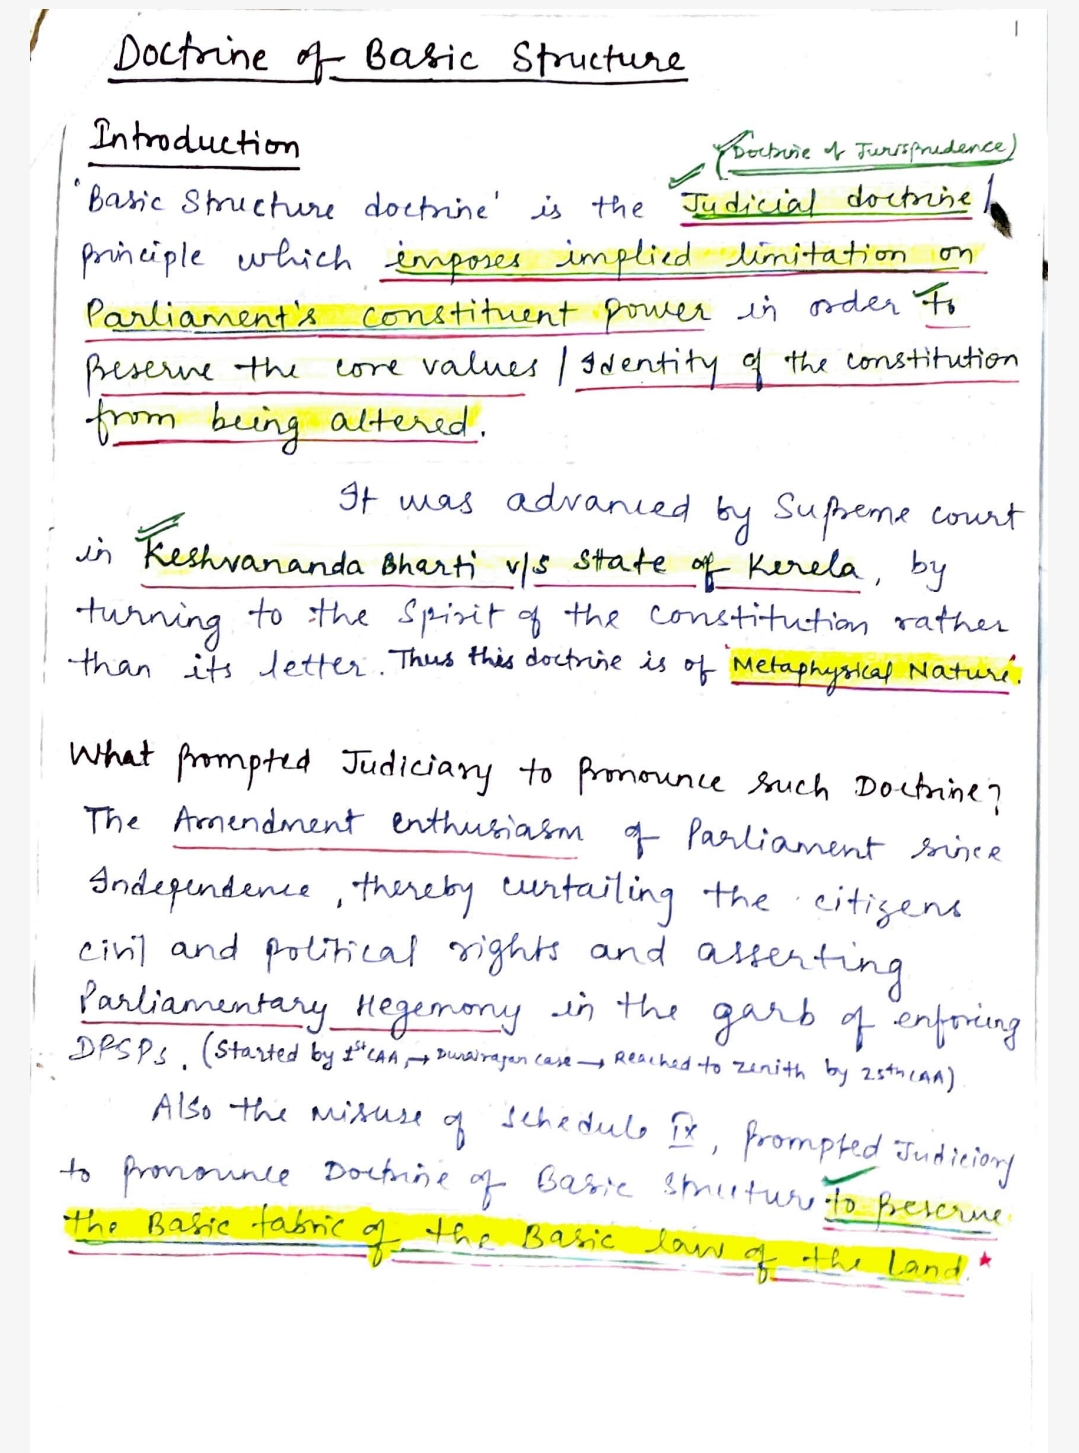 1
Doctrine of Basic Structure
Introduction
(Doctrine of Jurisprudence)
'Basic Structure doctrine' is the Judicial doctrine /
principle which imposes implied limitation on
Parliament's constituent power in order to
Preserve the core values / Identity of the constitution
from being altered.
It was advanced by Supreme court
in Keshvananda Bharti v/s State of Kerela, by
turning to the Spirit of the constitution rather
than its letter. Thus this doctrine is of 'Metaphysical Nature'.
What prompted Judiciary to pronounce such Doctrine?
The Amendment enthusiasm of Parliament since
Independence, thereby curtailing the citizens
civil and political rights and asserting
Parliamentary Hegemony in the garb of enforcing
DPSPs. (Started by 1st CAA, → Durairajan case → Reached to zenith by 25th CAA)
Also the misuse of schedule IX, prompted Judiciary
to pronounce Doctrine of Basic structure to Preserve
the Basic fabric of the Basic law of the Land. ★